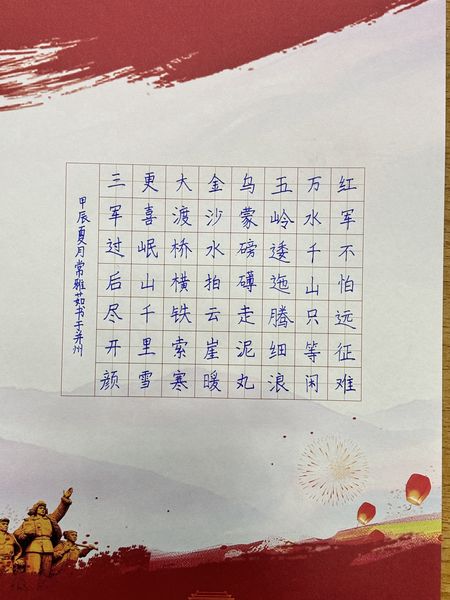 红军不怕远征难
万水千山只等闲
五岭逶迤腾细浪
乌蒙磅礴走泥丸
金沙水拍云崖暖
大渡桥横铁索寒
更喜岷山千里雪
三军过后尽开颜
甲辰夏月常雅茹书于并州